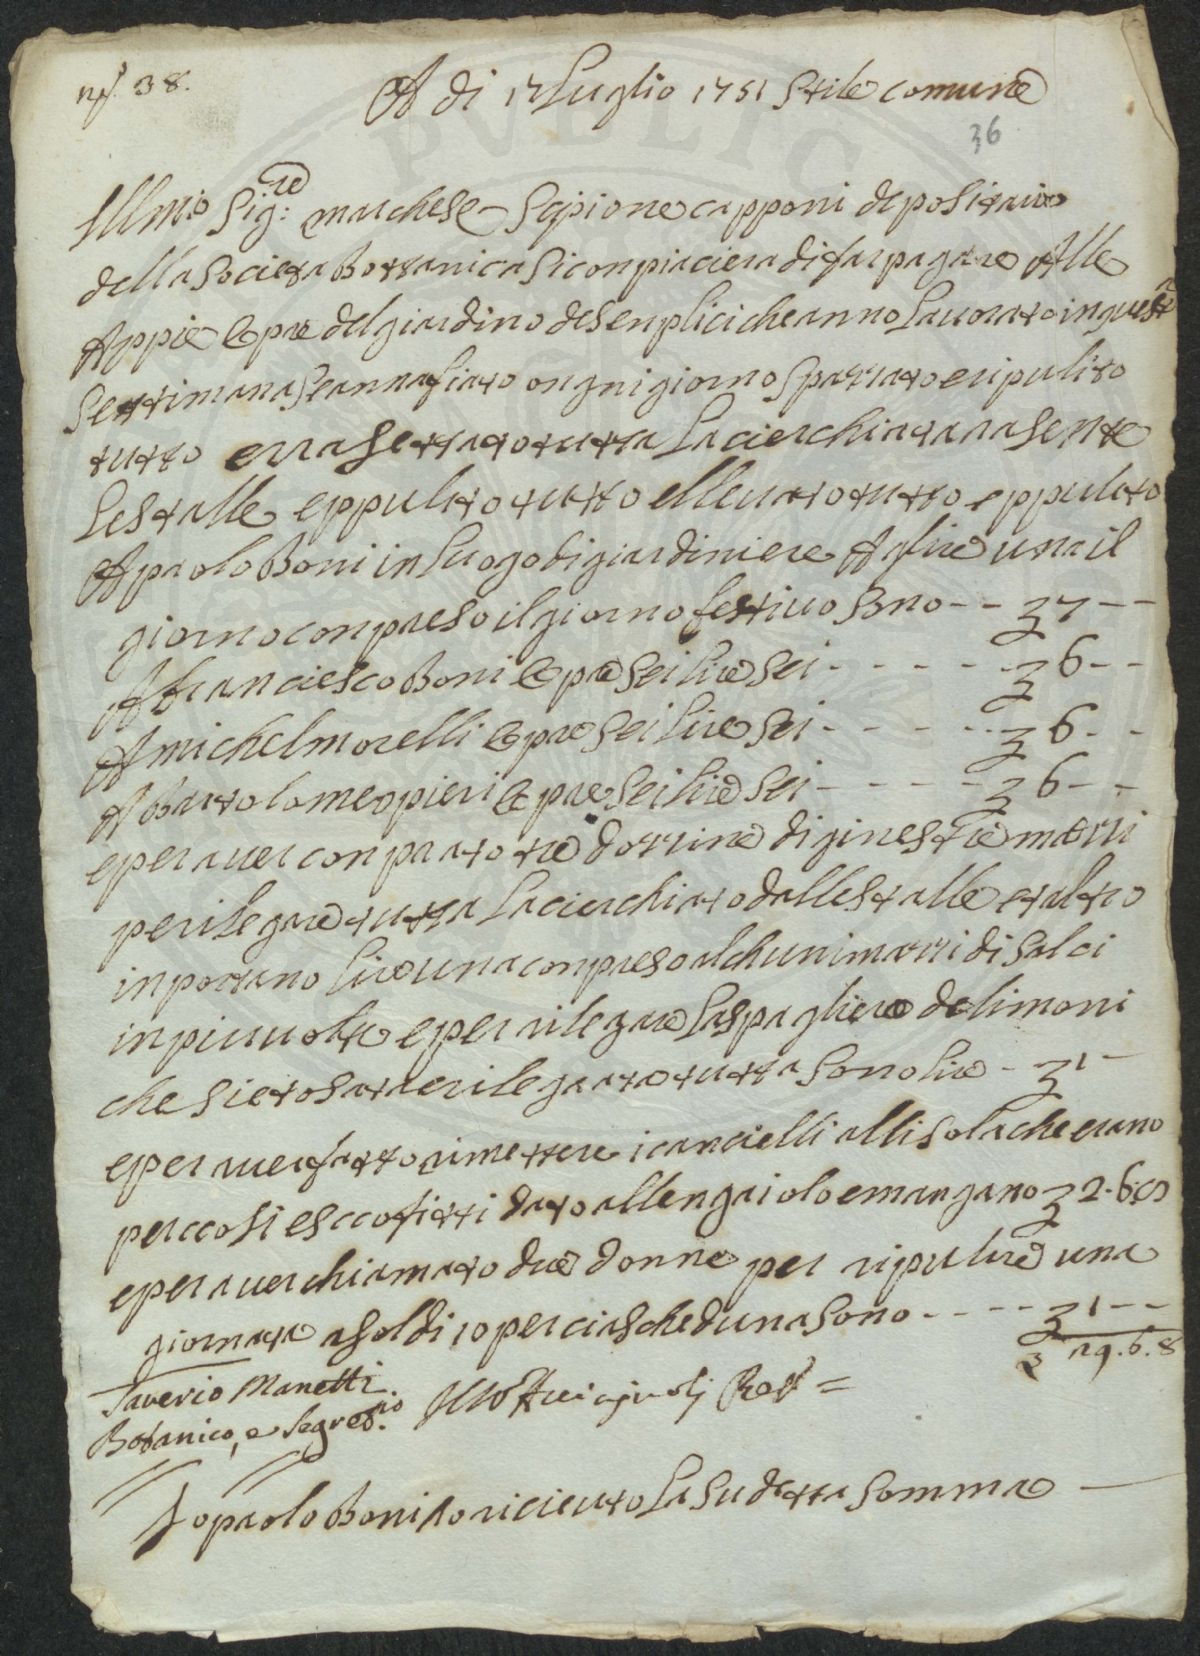 nº. 38.
A di 17 Luglio 1751 Stile comune
36
Illmo Sig:re marchese Scipione capponi depositaiio
della Societa Bottanica Si conpiaciera di far pagare Alle
Appie Opre del giardino de Senplici che anno Lauorato in questa
Settimana Seannafiato ongni giorno Sparato e ripulito
tutto errasettato tutta La cierchiata rasente
Lestalle eppulito tutto elleuato tutto eppulito
A paolo Boni in Luogo di giardiniere A lire una il
giorno conpreso il giorno festiuo Sono - - 37 - -
A franciesco Boni Opre Sei lire Sei - - - - - 36 - -
A michel morelli Opre Sei Lire Sei - - - - - 36 - -
A Bartolomeo pieri Opre Sei lire Sei - - - - - 36 - -
e per auer conprato tre dozzine di ginestre mazzi
per ilegare tutta La cierchiato dalle Stalle et altro
inportano lire una conpreso alchuni mazzi di Salci
in piu uolte e per rilegare Laspagliere de limoni
che Sie tosata e rilegaata tutta Sono lire - 31 -
e per auer fatto rimettere i cancielli allisola che erano
percosi esccofitti dato allengniaiolo emangano 32.6.8
e per auer chiamato due donne per ripulire una
giornata a Soldi 10 per ciascheduna Sono - - - - - 31 - -
3 29.6.8
Saverio Manetti
Botanico, e Segret.rio
=
Io paolo Boni o riceuto La Sudetta Somma —